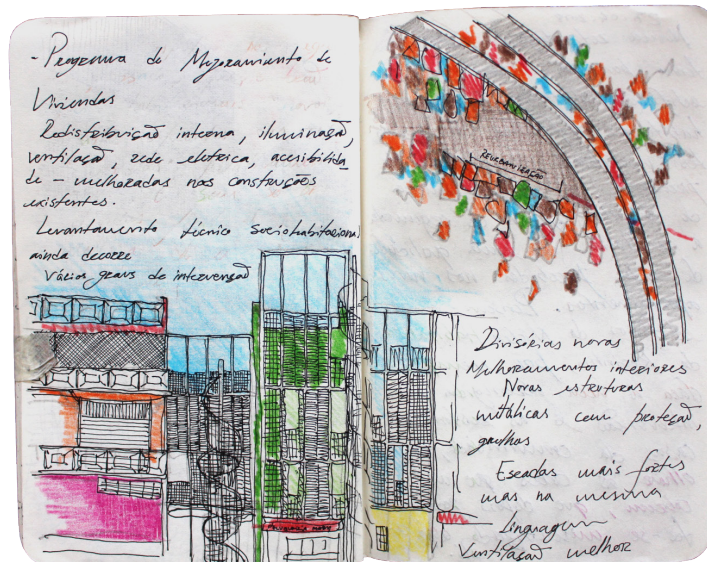 - Programa de Mejoramiento de
Viviendas
Redistribuição interna, iluminação,
ventilação, rede eletrica, acesibilida
de - melhoradas nas construções
existentes.
Levantamento técnico sociohabitacional
ainda decorre
Vários graus de intervenção
REURBANIZAÇÃO
Divisórias novas
Melhoramentos interiores
Novas estruturas
métalicas com proteção,
grelhas
Escadas mais fortes
mas na mesma
linguagem
Ventilação melhor